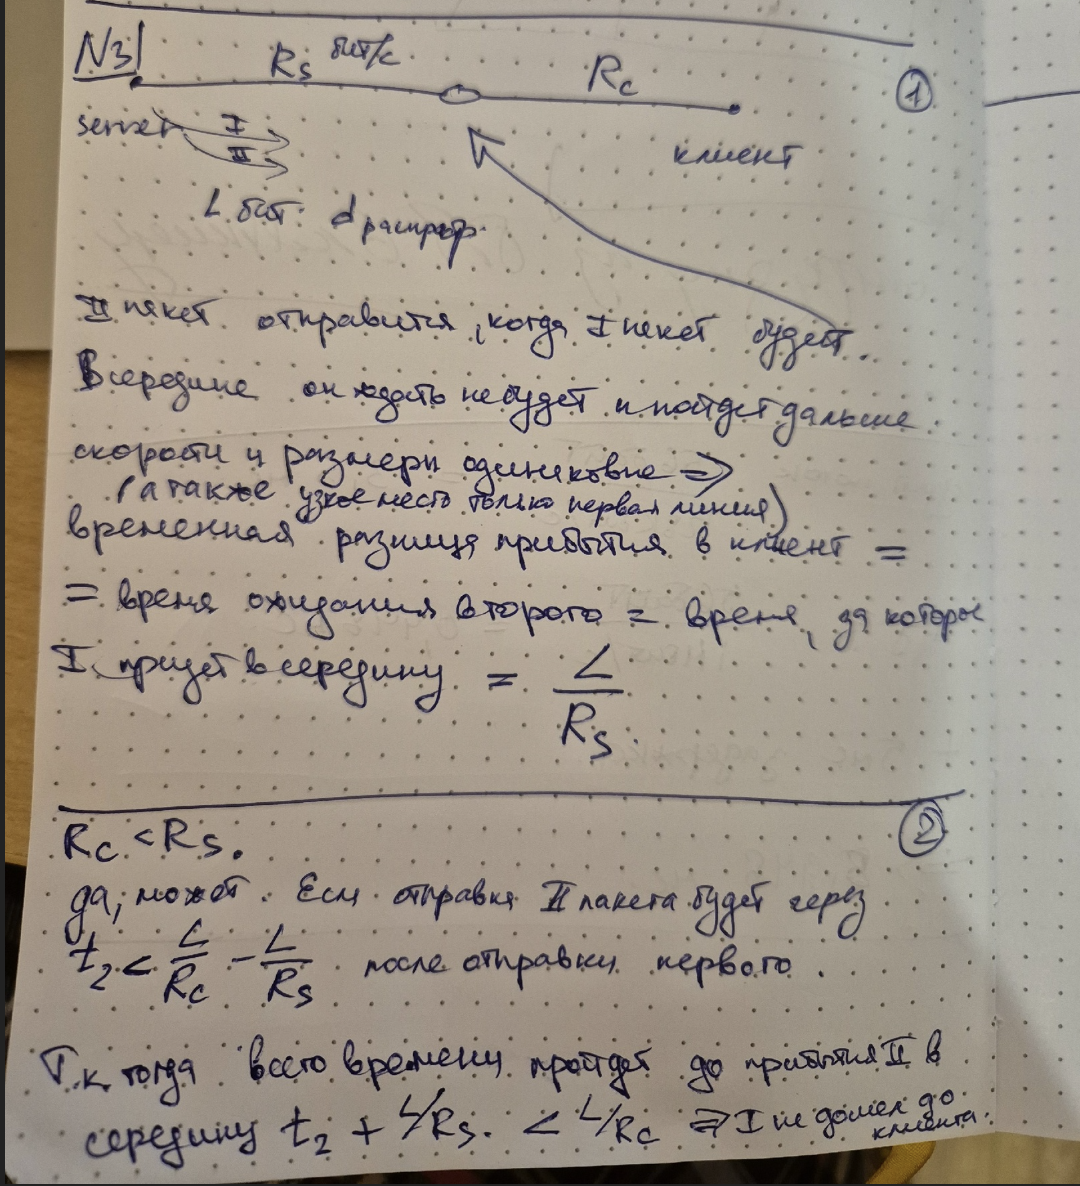 N3
Rs бит/с
Rc
1
server I
II
клиент
L бит: d распростр.
II пакет отправится, когда I пакет будет.
В середине он ждать не будет и пойдет дальше
скорости и размеры одинаковые ⇒
(а также узкое место только первая линия)
временная разница прибытия в клиент =
= время ожидания второго = время, за которое
I придет в середину = L/Rs.
2
Rc < Rs.
да, может. Если отправка II пакета будет через
t₂ < L/Rc - L/Rs после отправки первого.
Т.к. тогда всего времени пройдет до прибытия II в
середину t₂ + L/Rs. < L/Rc ⇒ I не дошел до
клиента.